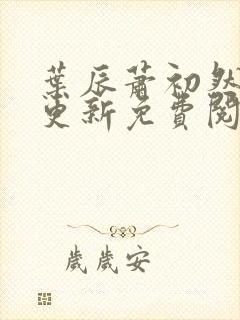 葉辰蕭初然
更新免費閱
歲歲安